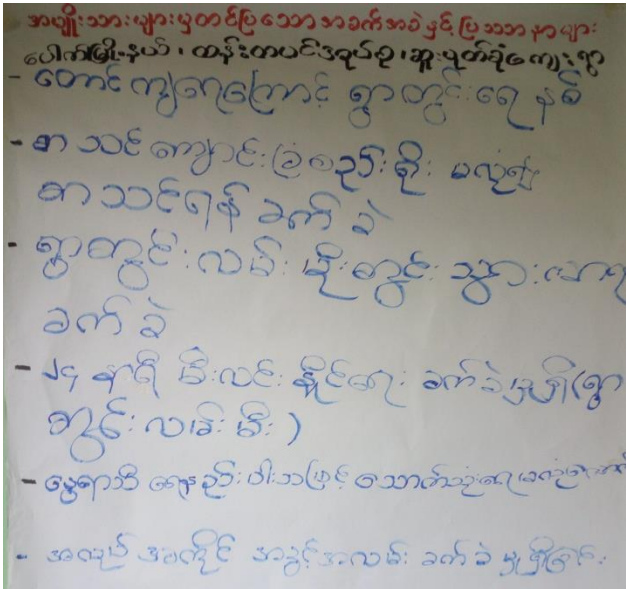 အမျိုးသားများမှတင်ပြသောအခက်အခဲနှင့်ပြဿနာများ
ပေါက်မြို့နယ်၊ ထန်းတပင်အုပ်စု၊ ဆူးပုတ်ခုံကျေးရွာ
- တောင်ကျရေကြောင့် ရွာတွင်းရေနစ်
- စာသင်ကျောင်းခြံစည်းရိုး မလုံ၍
စာသင်ရန် ခက်ခဲ
- ရွာတွင်းလမ်း မိုးတွင်း သွားလာရ
ခက်ခဲ
- ၂၄ နာရီ မီးလင်းနိုင်ရေး ခက်ခဲမှုရှိ (ရွာ
တွင်းလမ်းမီး)
- နွေရာသီ ရေနည်းပါးသဖြင့် သောက်သုံးရေမလုံလောက်
- အလုပ်အကိုင် အခွင့်အလမ်း ခက်ခဲမှုရှိခြင်း